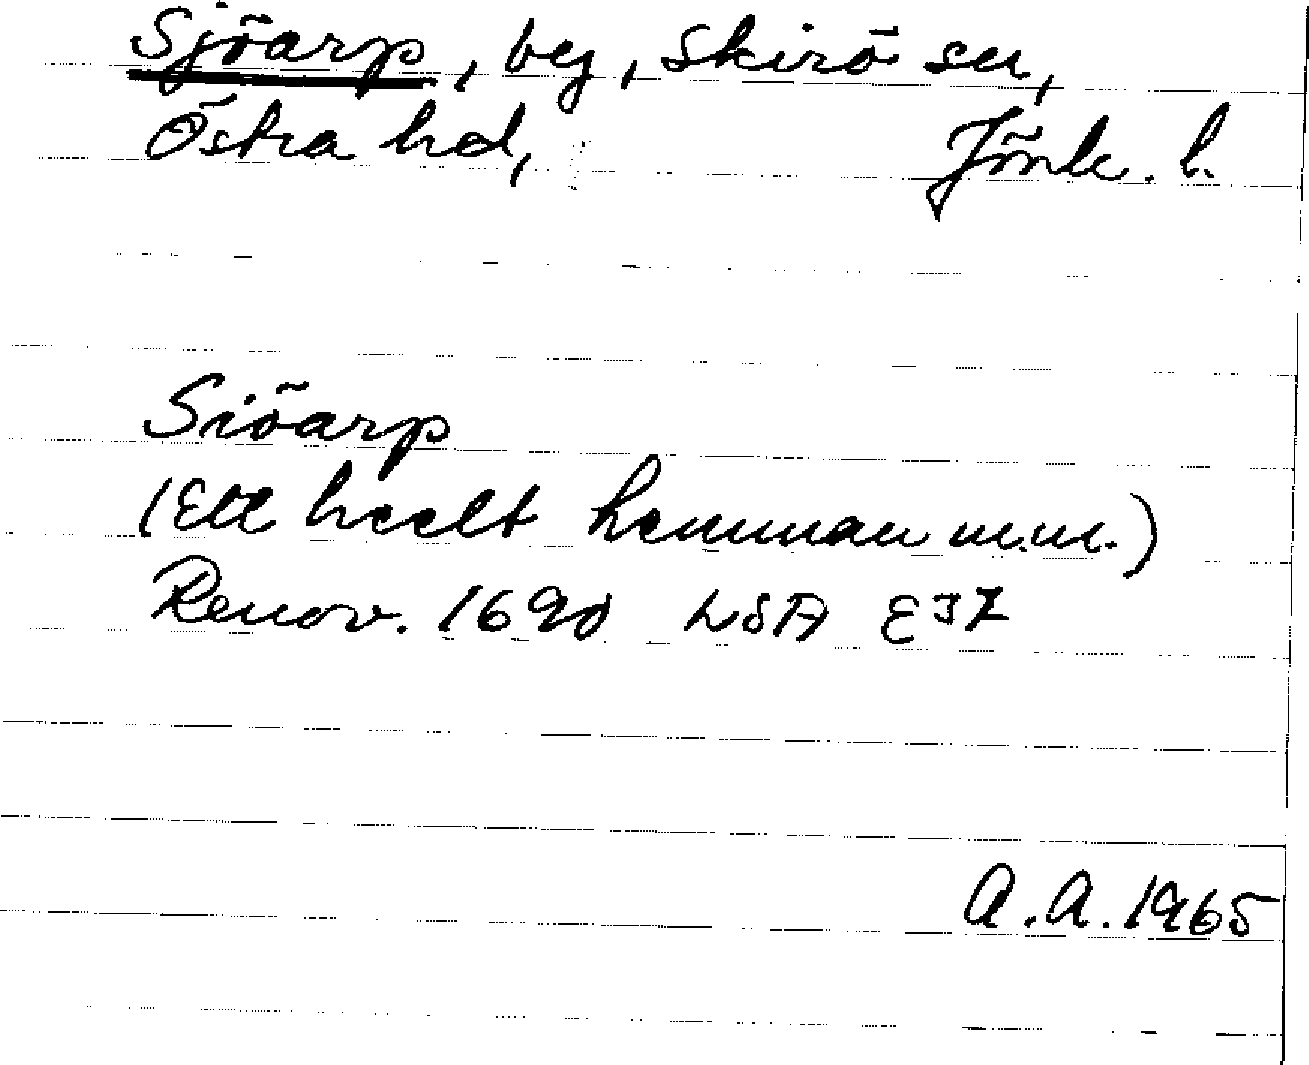 Sjöarp, by, Skirö sn,
Östra hd, Jönk. l.
Siöarp
(Ett heelt hemman m.m.)
Renov. 1690 LSA E37
A.A. 1965